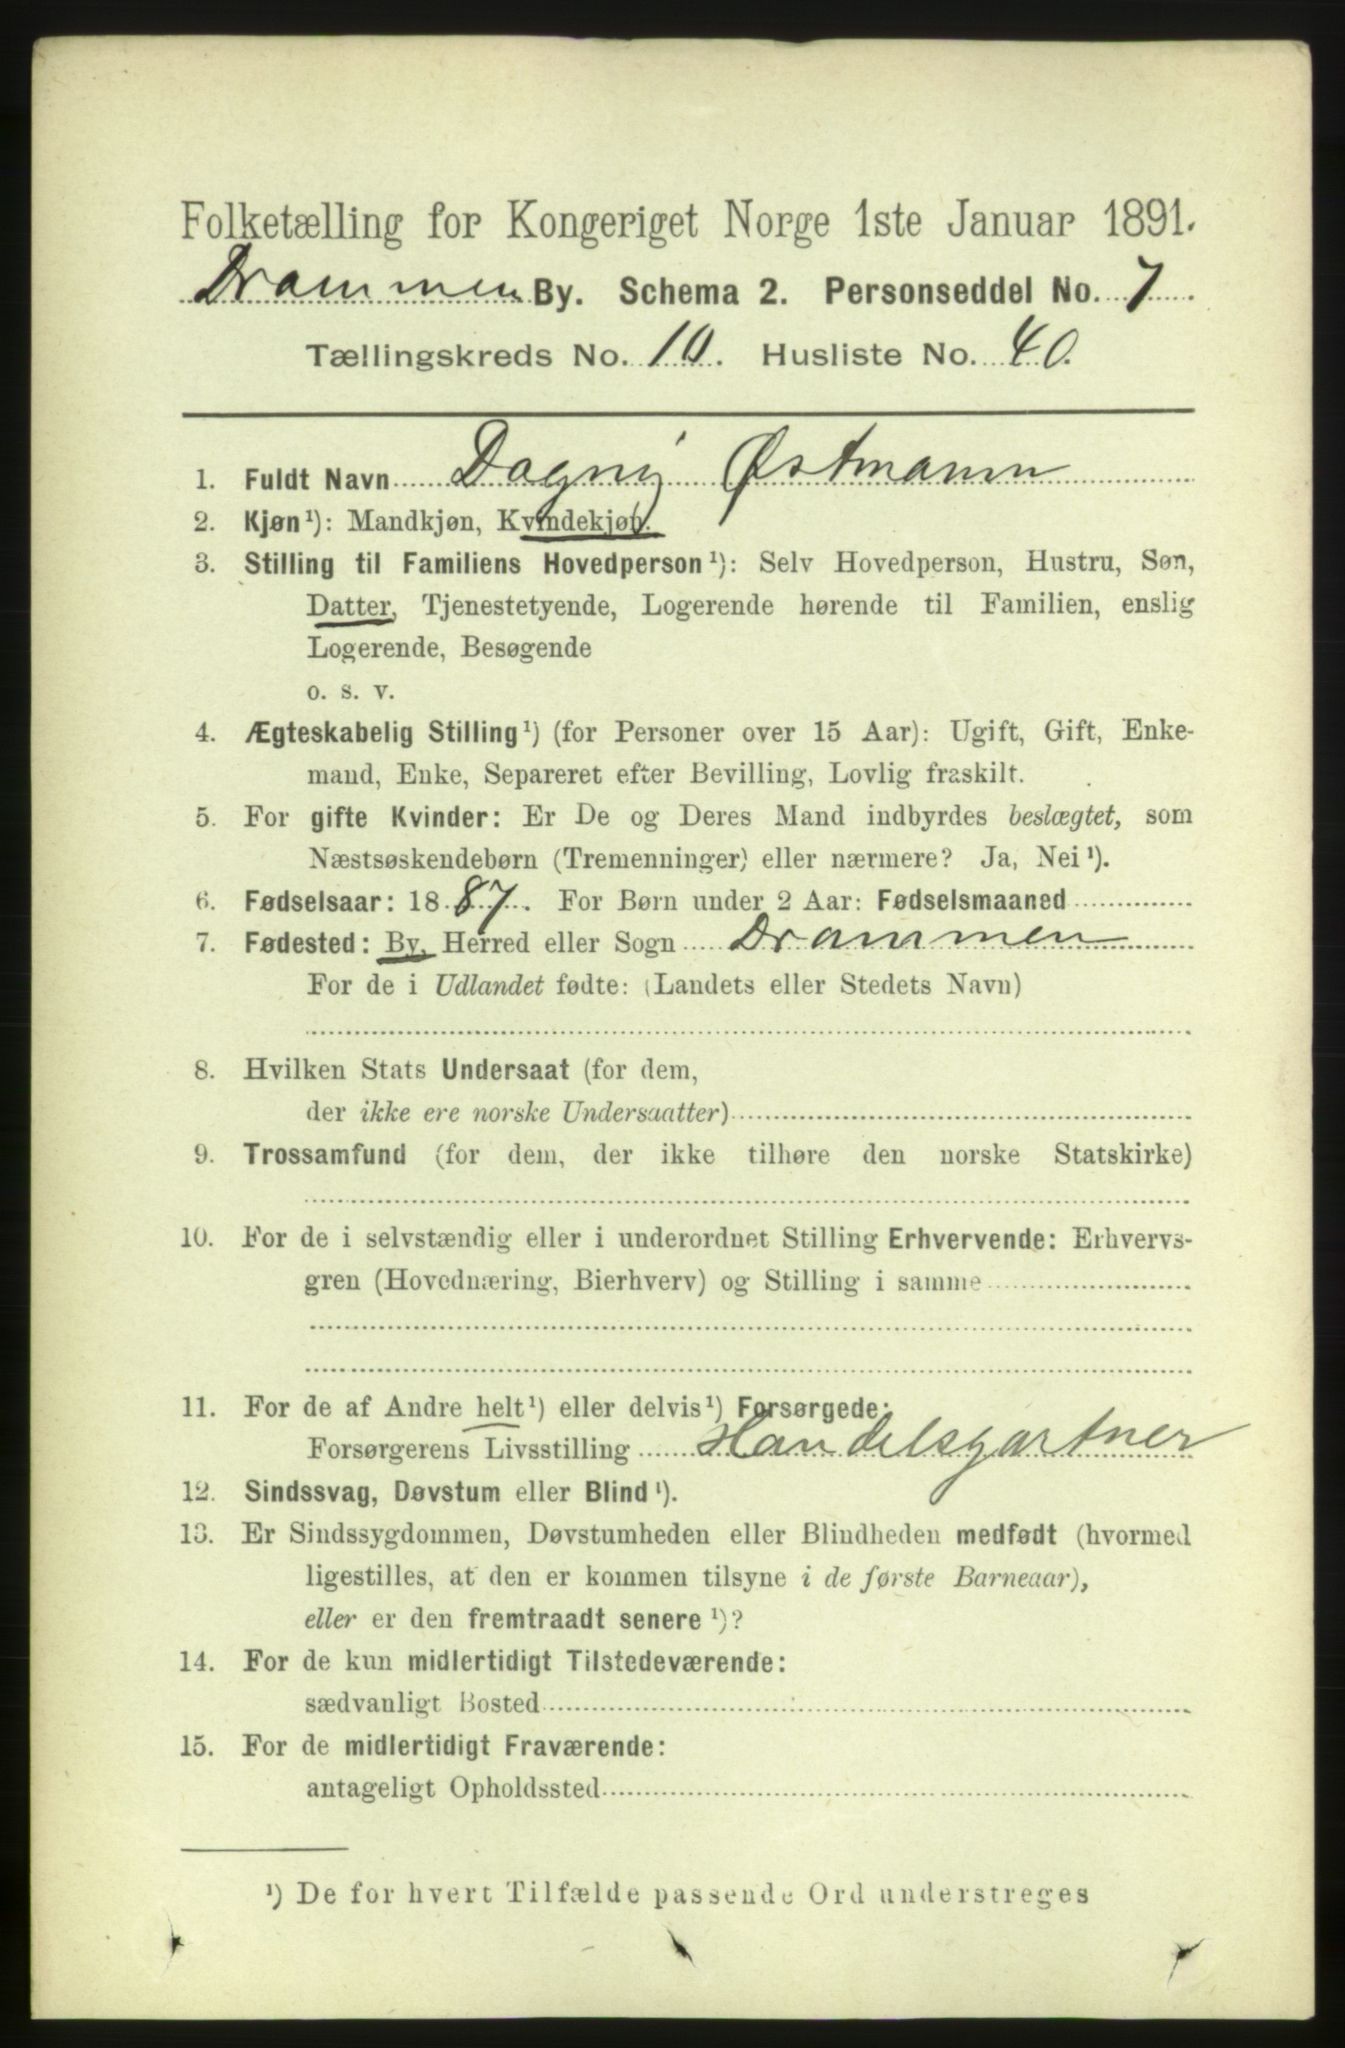 Folketælling for Kongeriget Norge 1ste Januar 1891.
Drammen By. Schema 2. Personseddel No. 7.
Tællingskreds No. 10. Husliste No. 40.
1. Fuldt Navn Dagny Østmann
2. Kjøn¹): Mandkjøn, Kvindekjøn.
3. Stilling til Familiens Hovedperson¹): Selv Hovedperson, Hustru, Søn,
Datter, Tjenestetyende, Logerende hørende til Familien, enslig
Logerende, Besøgende
o. s. v.
4. Ægteskabelig Stilling¹) (for Personer over 15 Aar): Ugift, Gift, Enke-
mand, Enke, Separeret efter Bevilling, Lovlig fraskilt.
5. For gifte Kvinder: Er De og Deres Mand indbyrdes beslægtet, som
Næstsøskendebørn (Tremenninger) eller nærmere? Ja, Nei¹).
6. Fødselsaar: 1887. For Børn under 2 Aar: Fødselsmaaned
7. Fødested: By, Herred eller Sogn Drammen
For de i Udlandet fødte: (Landets eller Stedets Navn)
8. Hvilken Stats Undersaat (for dem,
der ikke ere norske Undersaatter)
9. Trossamfund (for dem, der ikke tilhøre den norske Statskirke)
10. For de i selvstændig eller i underordnet Stilling Erhvervende: Erhvervs-
gren (Hovednæring, Bierhverv) og Stilling i samme
11. For de af Andre helt¹) eller delvis¹) Forsørgede:
Forsørgerens Livsstilling Handelsgartner
12. Sindssvag, Døvstum eller Blind¹).
13. Er Sindssygdommen, Døvstumheden eller Blindheden medfødt (hvormed
ligestilles, at den er kommen tilsyne i de første Barneaar),
eller er den fremtraadt senere¹)?
14. For de kun midlertidigt Tilstedeværende:
sædvanligt Bosted
15. For de midlertidigt Fraværende:
antageligt Opholdssted
¹) De for hvert Tilfælde passende Ord understreges